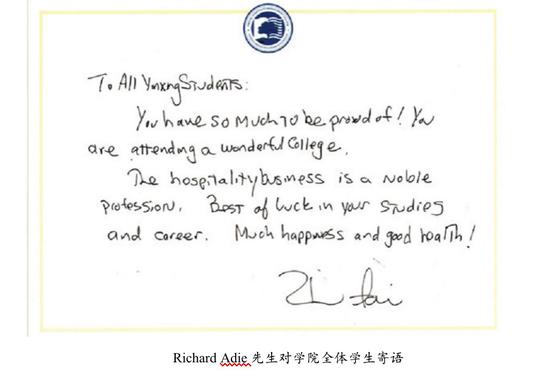 To All Students:
You have so much to be proud of! You
are attending a wonderful College.
The hospitality business is a noble
profession. Best of luck in your studies
and career. Much happiness and good health!
Richard Adie 先生对学院全体学生寄语